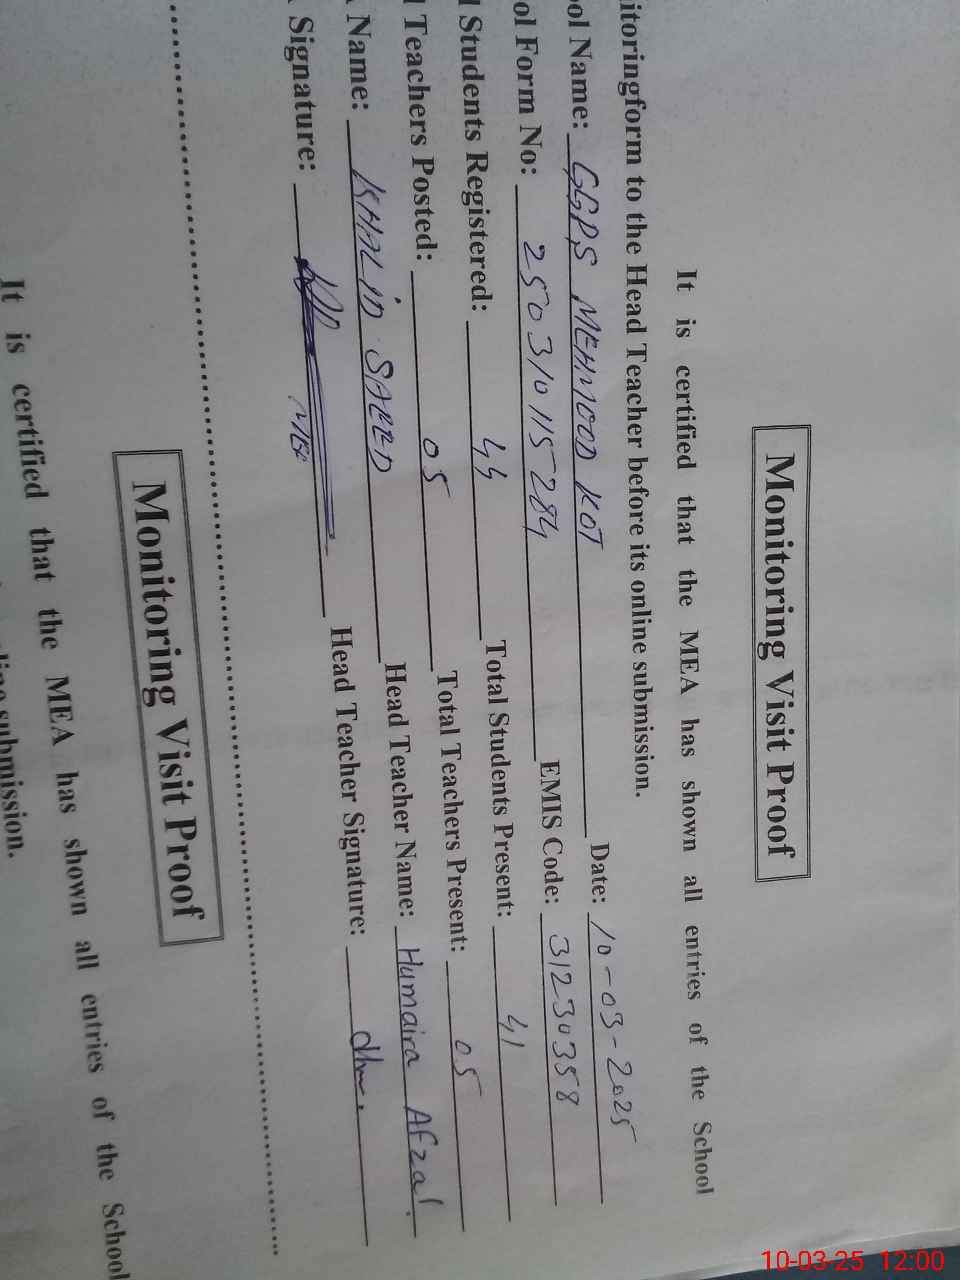 Monitoring Visit Proof
It is certified that the MEA has shown all entries of the School
itoringform to the Head Teacher before its online submission.
ool Name: GGPS MEHMOOD KOT Date: 10-03-2025
ol Form No: 250310115284 EMIS Code: 31230358
l Students Registered: 44 Total Students Present: 41
l Teachers Posted: 05 Total Teachers Present: 05
Name: KHALID SAEED Head Teacher Name: Humaira Afzal.
Signature: Head Teacher Signature:
Monitoring Visit Proof
It is certified that the MEA has shown all entries of the School
line submission.
10-03-25 12:00